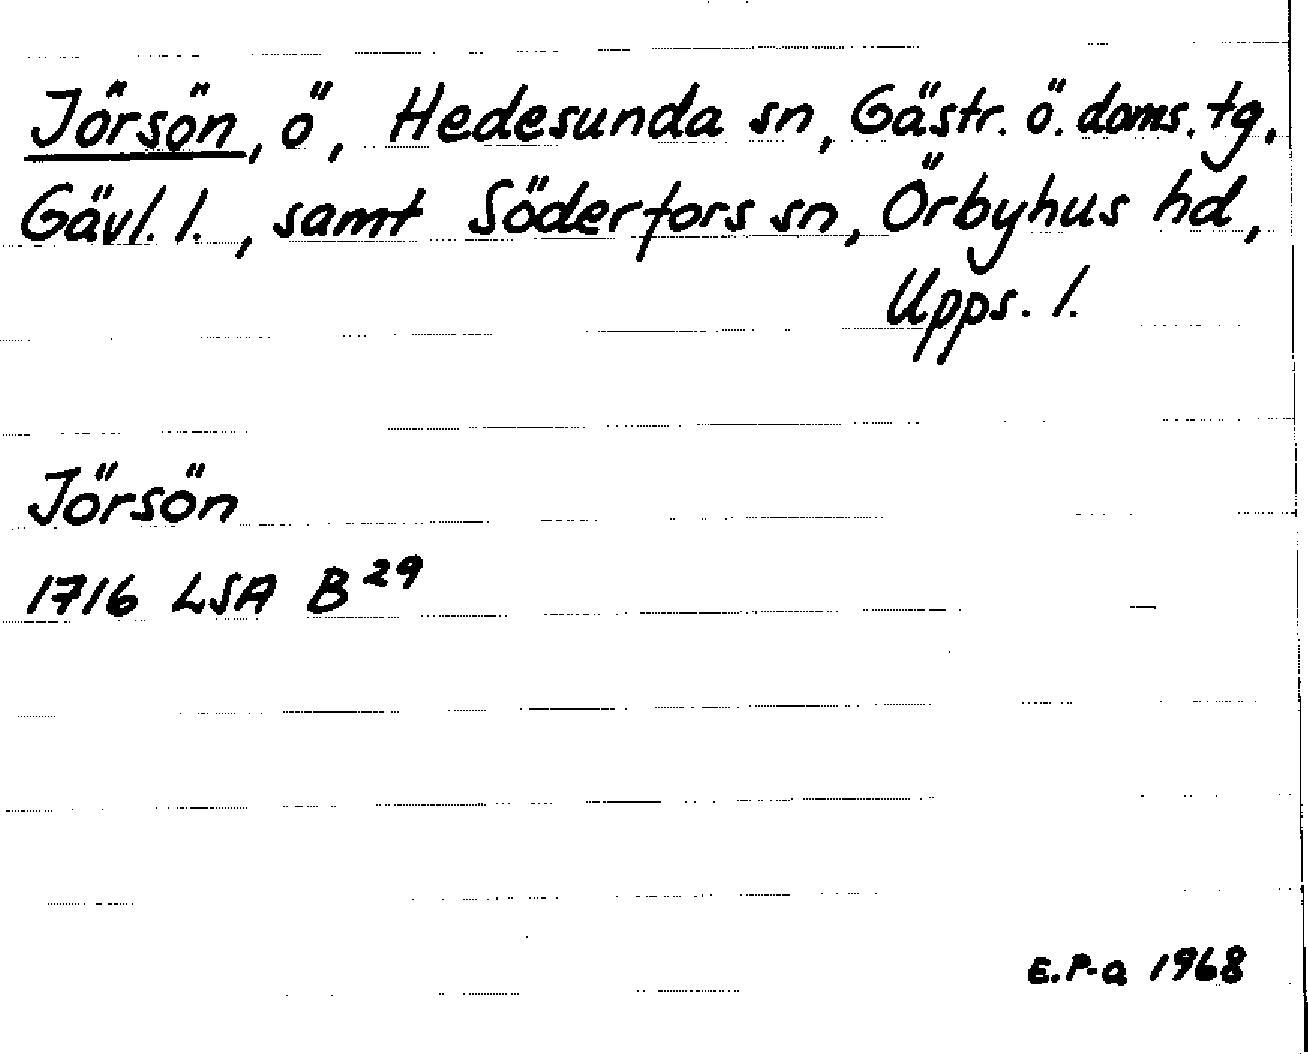 Jörsön, ö, Hedesunda sn, Gästr. ö. doms. tg.
Gävl. l., samt Söderfors sn, Örbyhus hd,
Upps. l.
Jörsön
1716 LSA B 29
E.P-a 1968